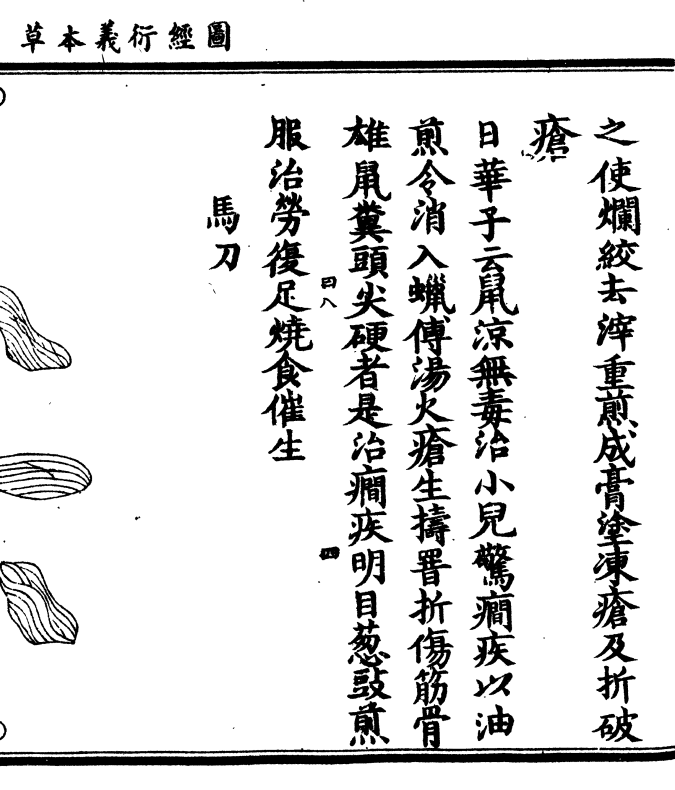 圖經衍義本草
之使爛絞去滓重煎成膏塗凍瘡及折破
瘡
日華子云鼠涼無毒治小兒驚癇疾以油
煎令消入蠟傅湯火瘡生擣罯折傷筋骨
雄鼠糞頭尖硬者是治癇疾明目葱豉煎
四八
四
服治勞復足燒食催生
馬刀